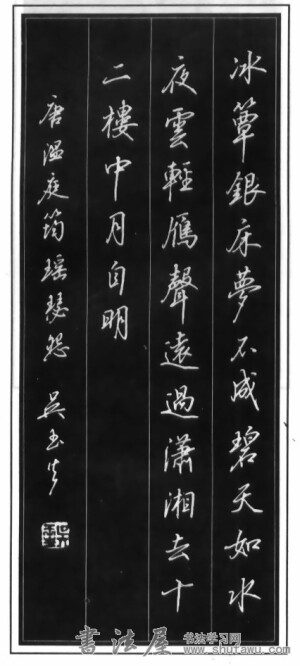 冰簟銀床夢不成碧天如水
夜雲輕雁聲遠過瀟湘去十
二樓中月自明
唐溫庭筠瑶瑟怨 吴玉生
書法屋
书法学习网
www.shufawu.com